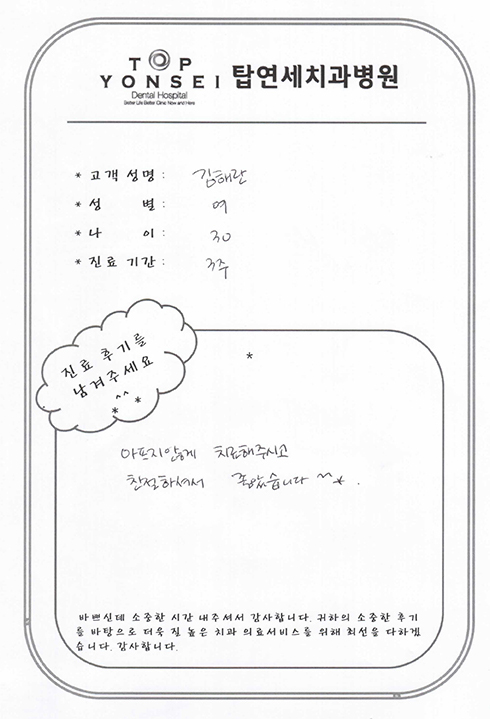 TOP
YONSEI 탑연세치과병원
Dental Hospital
Better Life Better Clinic Now and Here
* 고객 성명 : 김해란
* 성 별 : 여
* 나 이 : 30
* 진료 기간 : 3주
진료 후기를
남겨주세요
^^
* *
*
아프지않게 치료해주시고
친절하셔서 좋았습니다 ^^*.
바쁘신데 소중한 시간 내주셔서 감사합니다. 귀하의 소중한 후기
를 바탕으로 더욱 질 높은 치과 의료서비스를 위해 최선을 다하겠
습니다. 감사합니다.